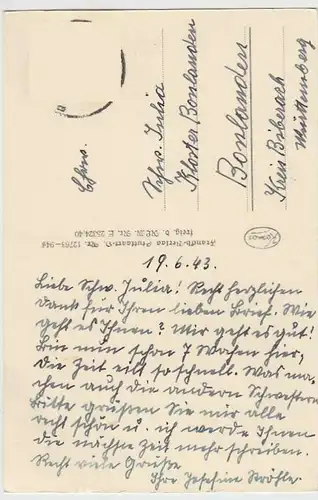 Ehrw.
Schw. Julia
Kloster Bonlanden
Bonlanden
Kreis Biberach
Württemberg
Franckh-Verlag Stuttgart-O.
freig. d. RLM. Nr.
19.6.43.
Liebe Schw. Julia! Recht herzlichen
Dank für Ihren lieben Brief. Wie
geht es Ihnen? Mir geht es gut!
Bin nun schon 7 Wochen hier,
die Zeit eilt so schnell. Was ma-
chen auch die andern Schwestern
Bitte grüssen Sie mir alle
recht schön u. ich werde Ihnen
die nächste Zeit mehr schreiben.
Recht viele Grüsse
Ihre Josefine Ströhle